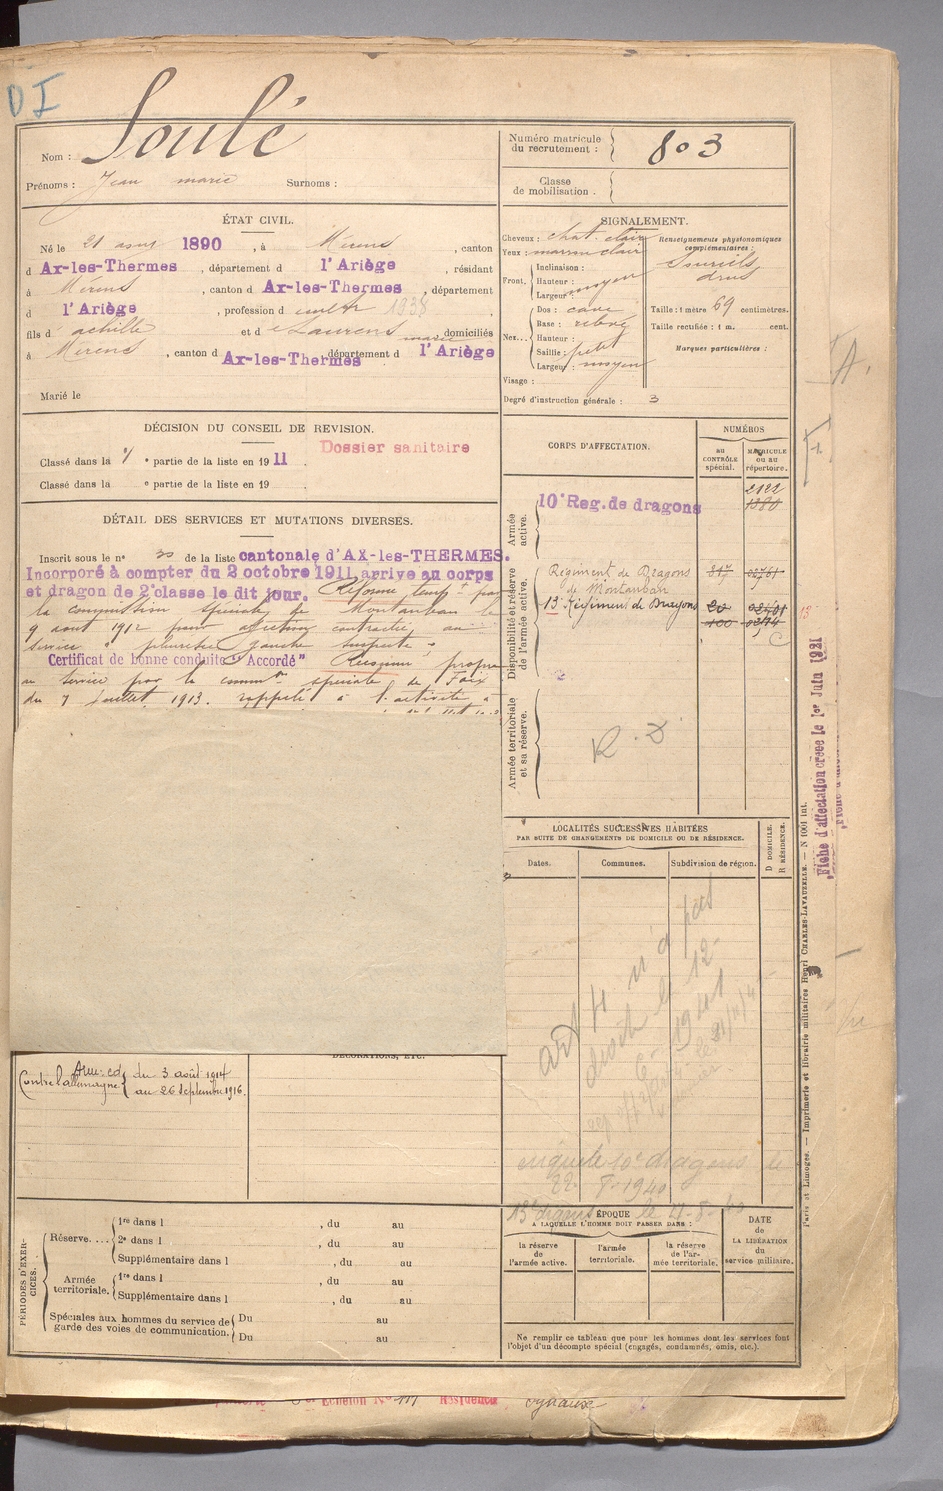 DI
Nom : Soulé
Prénoms : Jean marie Surnoms :
Numéro matricule du recrutement : 803
Classe de mobilisation .
ÉTAT CIVIL.
Né le 21 1890 , à Mérens , canton
d Ax-les-Thermes , département d l'Ariège , résidant
à Mérens , canton d Ax-les-Thermes , département
d l'Ariège , profession d cultr 1938 ,
fils d' achille et d e Laurens marie domiciliés
à Mérens , canton d Ax-les-Thermes , département d l'Ariège
Marié le
SIGNALEMENT.
Cheveux : chat. clair
Yeux : marron clair
Front. Inclinaison :
Hauteur :
Largeur : moyen
Nez... Dos : cave
Base : relevé
Hauteur :
Saillie : petit
Largeur : moyen
Visage :
Degré d'instruction générale : 3
Renseignements physionomiques complémentaires :
Sourcils
drus
Taille : 1 mètre 69 centimètres.
Taille rectifiée : 1 m. cent.
Marques particulières :
DÉCISION DU CONSEIL DE REVISION.
Dossier sanitaire
Classé dans la 1 e partie de la liste en 1911 .
Classé dans la e partie de la liste en 19 .
DÉTAIL DES SERVICES ET MUTATIONS DIVERSES.
Inscrit sous le n° de la liste cantonale d'AX-les-THERMES.
Incorporé à compter du 2 octobre 1911 arrive au corps
et dragon de 2e classe le dit jour. Réformé tempt par
la commission spéciale de Montauban le
9 aout 1912 pour affection contractée au
service " pleurésie gauche suspecte "
Certificat de bonne conduite "Accordé" Reconnu propre
au service par la common spéciale de Foix
du 7 Juillet 1913. rappelé à l'activité
CORPS D'AFFECTATION.
NUMÉROS
au CONTRÔLE spécial.
MATRICULE ou au répertoire.
Armée active.
10e Reg. de dragons
2122
1380
Disponibilité et réserve de l'armée active.
Régiment de Dragons
de Montauban
13e Régiment de Dragons
Armée territoriale et sa réserve.
R. D
LOCALITÉS SUCCESSIVES HABITÉES
PAR SUITE DE CHANGEMENTS DE DOMICILE OU DE RÉSIDENCE.
Dates.
Communes.
Subdivision de région.
D DOMICILE.
R RÉSIDENCE.
art 4 n'a pas
le 12-
1941
DÉCORATIONS, ETC.
Contre l'allemagne
du 3 août 1914
au 26 Septembre 1916.
10e dragons le
22- 8-1940
PÉRIODES D'EXERCICES.
Réserve....
1re dans l , du au
2e dans l , du au
Supplémentaire dans l , du au
Armée territoriale.
1re dans l , du au
Supplémentaire dans l , du au
Spéciales aux hommes du service de garde des voies de communication.
Du au
Du au
ÉPOQUE
A LAQUELLE L'HOMME DOIT PASSER DANS :
la réserve de l'armée active.
l'armée territoriale.
la réserve de l'armée territoriale.
DATE DE LA LIBÉRATION du service militaire.
Ne remplir ce tableau que pour les hommes dont les services font
l'objet d'un décompte spécial (engagés, condamnés, omis, etc.).
Paris et Limoges. — Imprimerie et librairie militaires Henri CHARLES-LAVAUZELLE. — N 1001 int.
Fiche d'affectation créée le 1er Juin 1921
Echelon No 111 Résidence